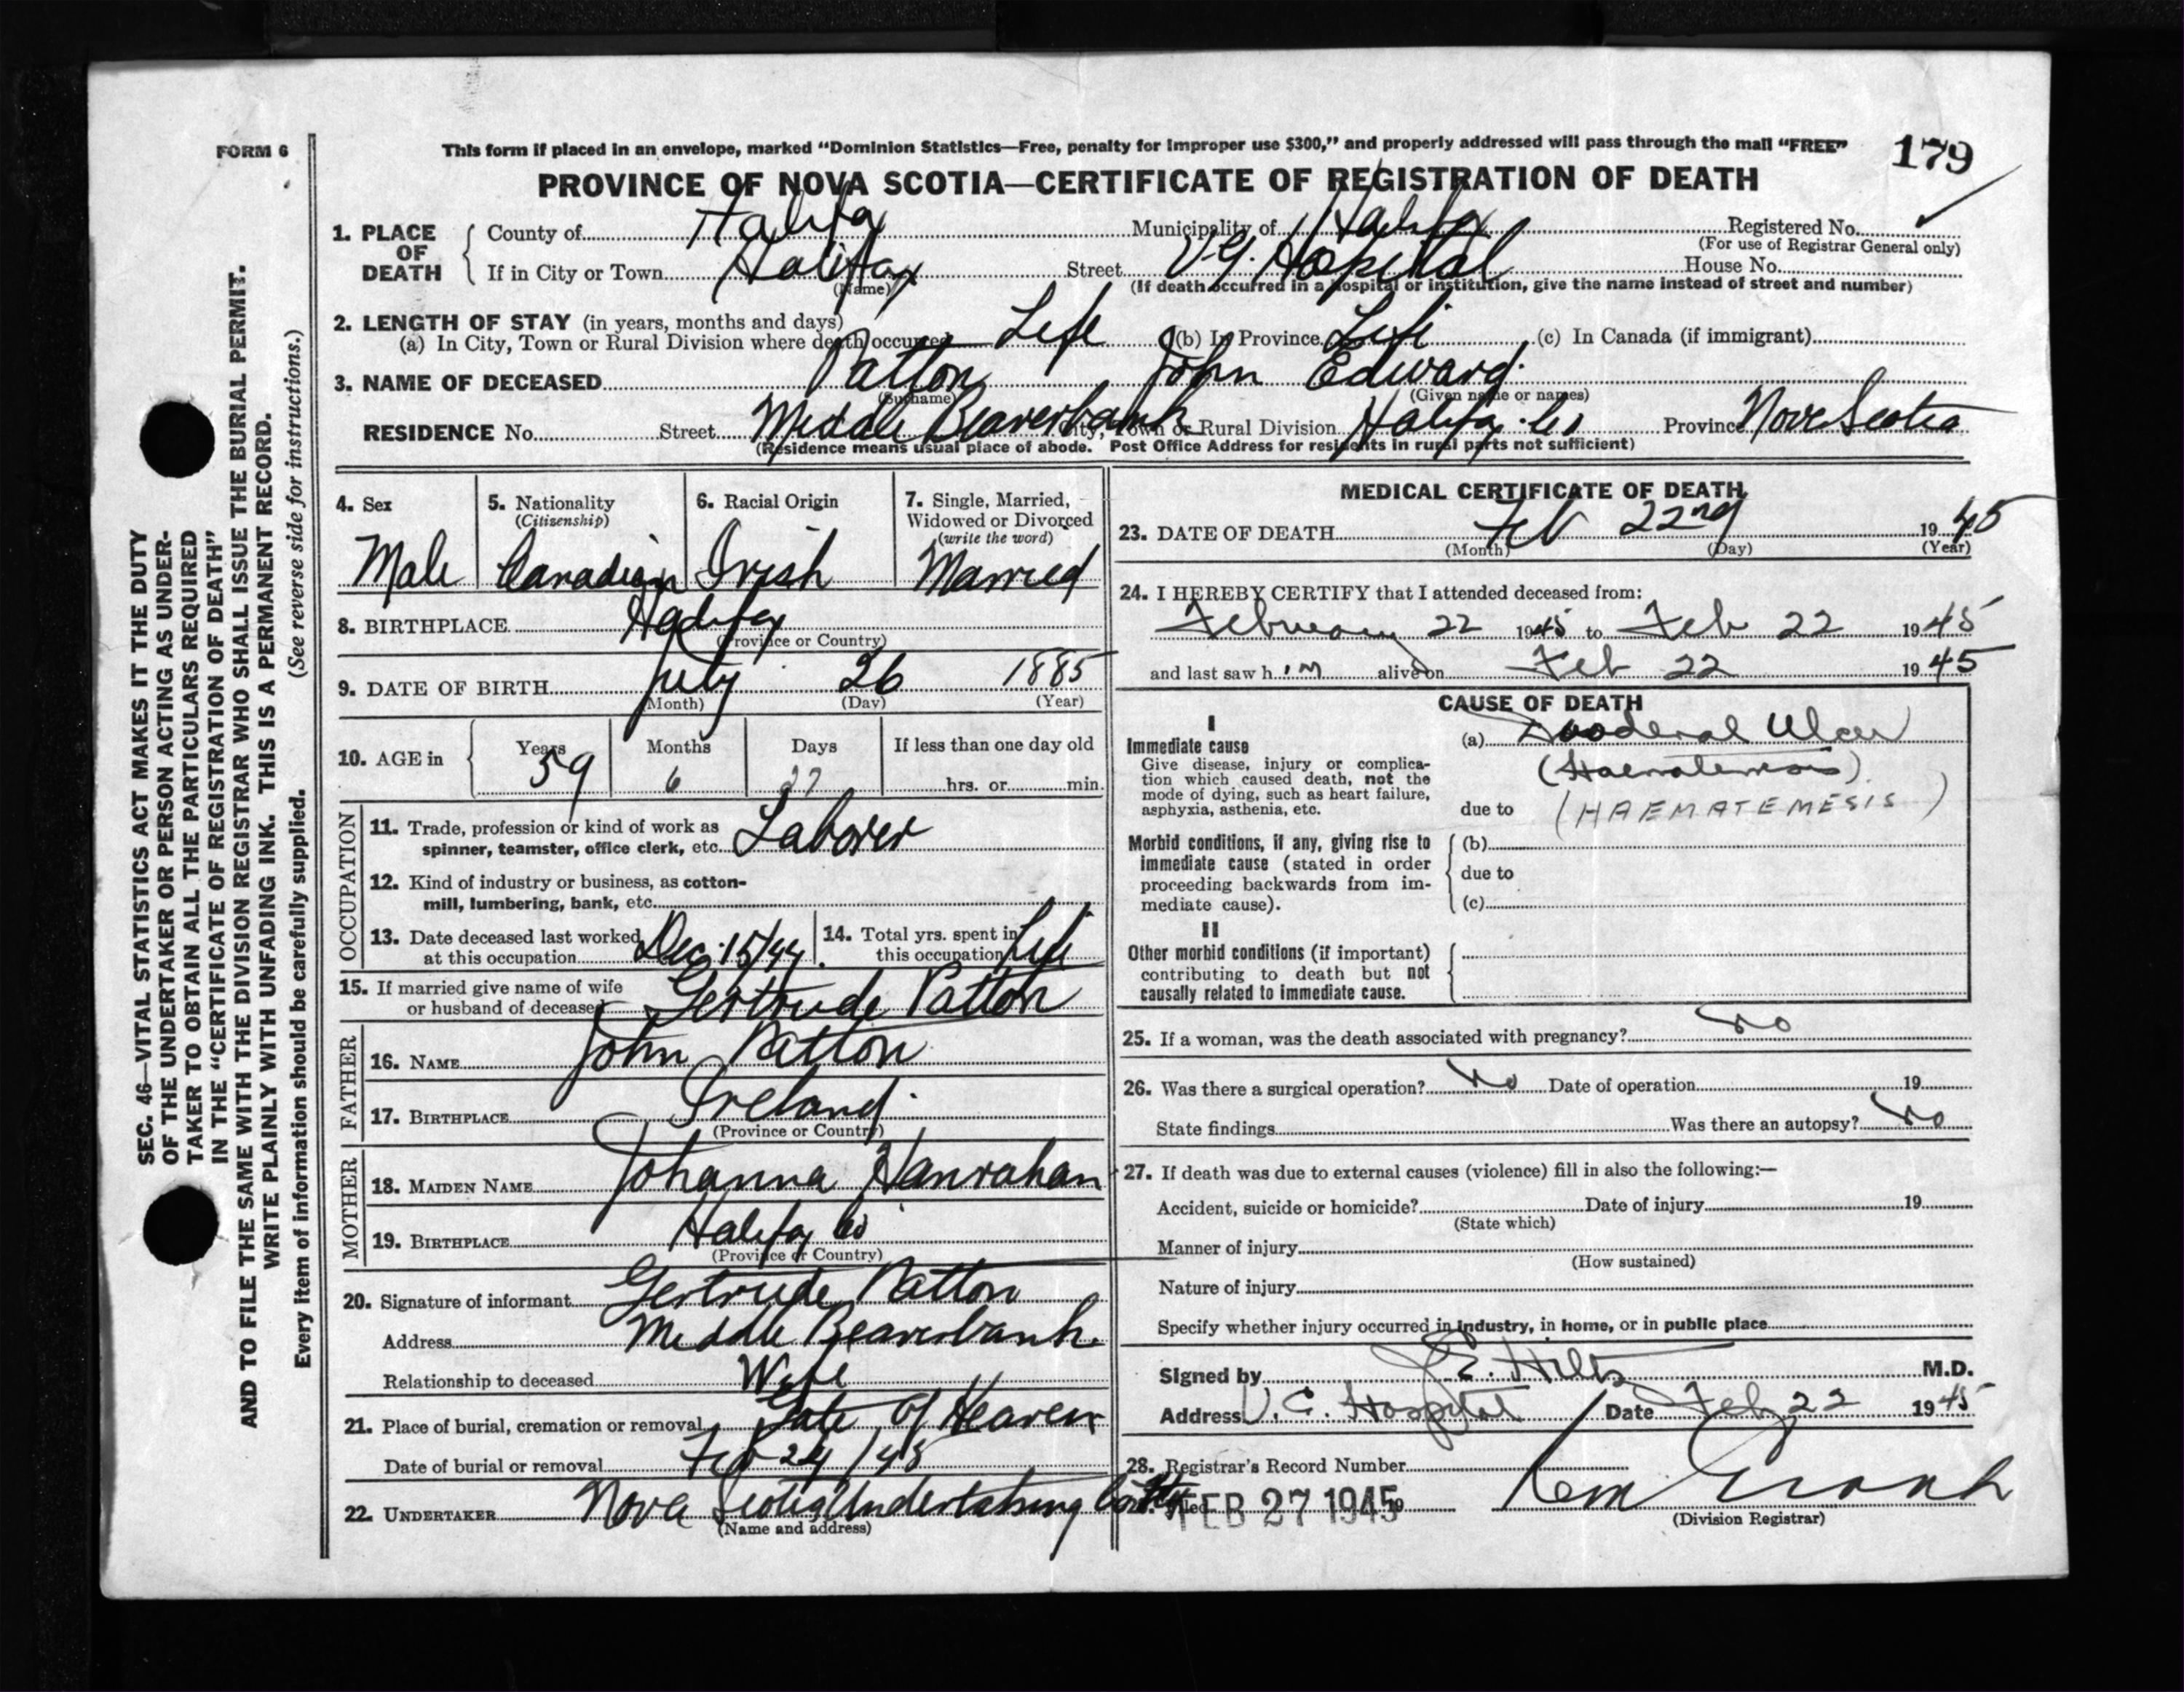 FORM 6
This form if placed in an envelope, marked "Dominion Statistics—Free, penalty for improper use $300," and properly addressed will pass through the mail "FREE"
179
PROVINCE OF NOVA SCOTIA—CERTIFICATE OF REGISTRATION OF DEATH
1. PLACE OF DEATH
County of Halifax Municipality of Halifax Registered No.
(For use of Registrar General only)
If in City or Town Halifax Street V.G. Hospital House No.
(Name) (If death occurred in a hospital or institution, give the name instead of street and number)
2. LENGTH OF STAY (in years, months and days)
(a) In City, Town or Rural Division where death occurred Life (b) In Province Life (c) In Canada (if immigrant)
3. NAME OF DECEASED Patton John Edward
(Surname) (Given name or names)
RESIDENCE No. Street Middle Beaverbank City, Town or Rural Division Halifax Co Province Nova Scotia
(Residence means usual place of abode. Post Office Address for residents in rural parts not sufficient)
4. Sex
Male
5. Nationality
(Citizenship)
Canadian
6. Racial Origin
Irish
7. Single, Married,
Widowed or Divorced
(write the word)
Married
8. BIRTHPLACE Halifax
(Province or Country)
9. DATE OF BIRTH July 26 1885
(Month) (Day) (Year)
10. AGE in Years Months Days If less than one day old
59 6 27 hrs. or min.
OCCUPATION
11. Trade, profession or kind of work as
spinner, teamster, office clerk, etc. Laborer
12. Kind of industry or business, as cotton-
mill, lumbering, bank, etc.
13. Date deceased last worked
at this occupation Dec. 15/44
14. Total yrs. spent in
this occupation Life
15. If married give name of wife
or husband of deceased Gertrude Patton
FATHER
16. NAME John Patton
17. BIRTHPLACE Ireland
(Province or Country)
MOTHER
18. MAIDEN NAME Johanna Hanrahan
19. BIRTHPLACE Halifax Co
(Province or Country)
20. Signature of informant Gertrude Patton
Address Middle Beaverbank.
Relationship to deceased Wife
21. Place of burial, cremation or removal Gate Of Heaven
Date of burial or removal Feb 24/45
22. UNDERTAKER Nova Scotia Undertaking Co
(Name and address)
MEDICAL CERTIFICATE OF DEATH
23. DATE OF DEATH Feb 22nd 1945
(Month) (Day) (Year)
24. I HEREBY CERTIFY that I attended deceased from:
February 22 1945 to Feb 22 1945
and last saw h im alive on Feb 22 1945
CAUSE OF DEATH
I
Immediate cause
Give disease, injury or complica-
tion which caused death, not the
mode of dying, such as heart failure,
asphyxia, asthenia, etc.
(a) Duodenal Ulcer
(Haematemesis)
due to (HAEMATEMESIS)
Morbid conditions, if any, giving rise to
immediate cause (stated in order
proceeding backwards from im-
mediate cause).
(b)
due to
(c)
II
Other morbid conditions (if important)
contributing to death but not
causally related to immediate cause.
25. If a woman, was the death associated with pregnancy? No
26. Was there a surgical operation? No Date of operation 19
State findings Was there an autopsy? No
27. If death was due to external causes (violence) fill in also the following:—
Accident, suicide or homicide? Date of injury 19
(State which)
Manner of injury
(How sustained)
Nature of injury
Specify whether injury occurred in industry, in home, or in public place
Signed by J.E. Hiltz M.D.
Address V.G. Hospital Date Feb 22 1945
28. Registrar's Record Number
Filed FEB 27 1945
(Division Registrar)
SEC. 46—VITAL STATISTICS ACT MAKES IT THE DUTY
OF THE UNDERTAKER OR PERSON ACTING AS UNDER-
TAKER TO OBTAIN ALL THE PARTICULARS REQUIRED
IN THE "CERTIFICATE OF REGISTRATION OF DEATH"
AND TO FILE THE SAME WITH THE DIVISION REGISTRAR WHO SHALL ISSUE THE BURIAL PERMIT.
WRITE PLAINLY WITH UNFADING INK. THIS IS A PERMANENT RECORD.
Every item of information should be carefully supplied. (See reverse side for instructions.)